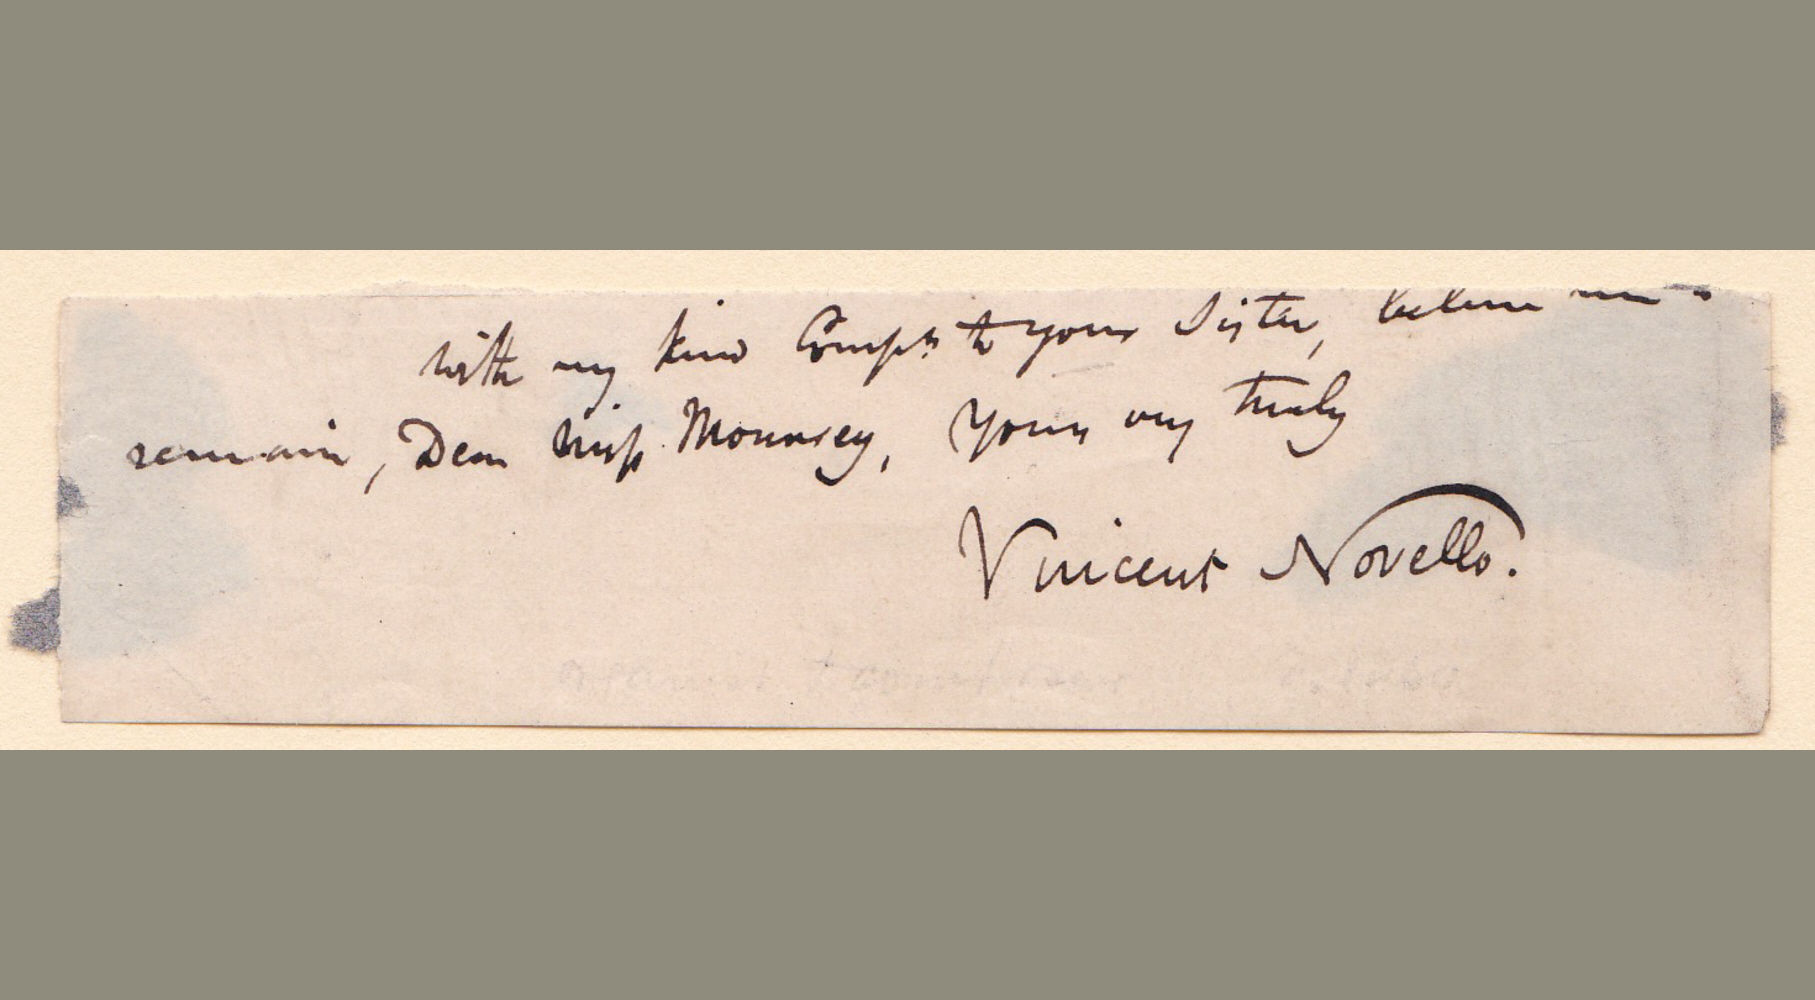 With my kind Compts. to your Sister, believe me to
remain, Dear Miss Mounsey, Yours very truly
Vincent Novello.